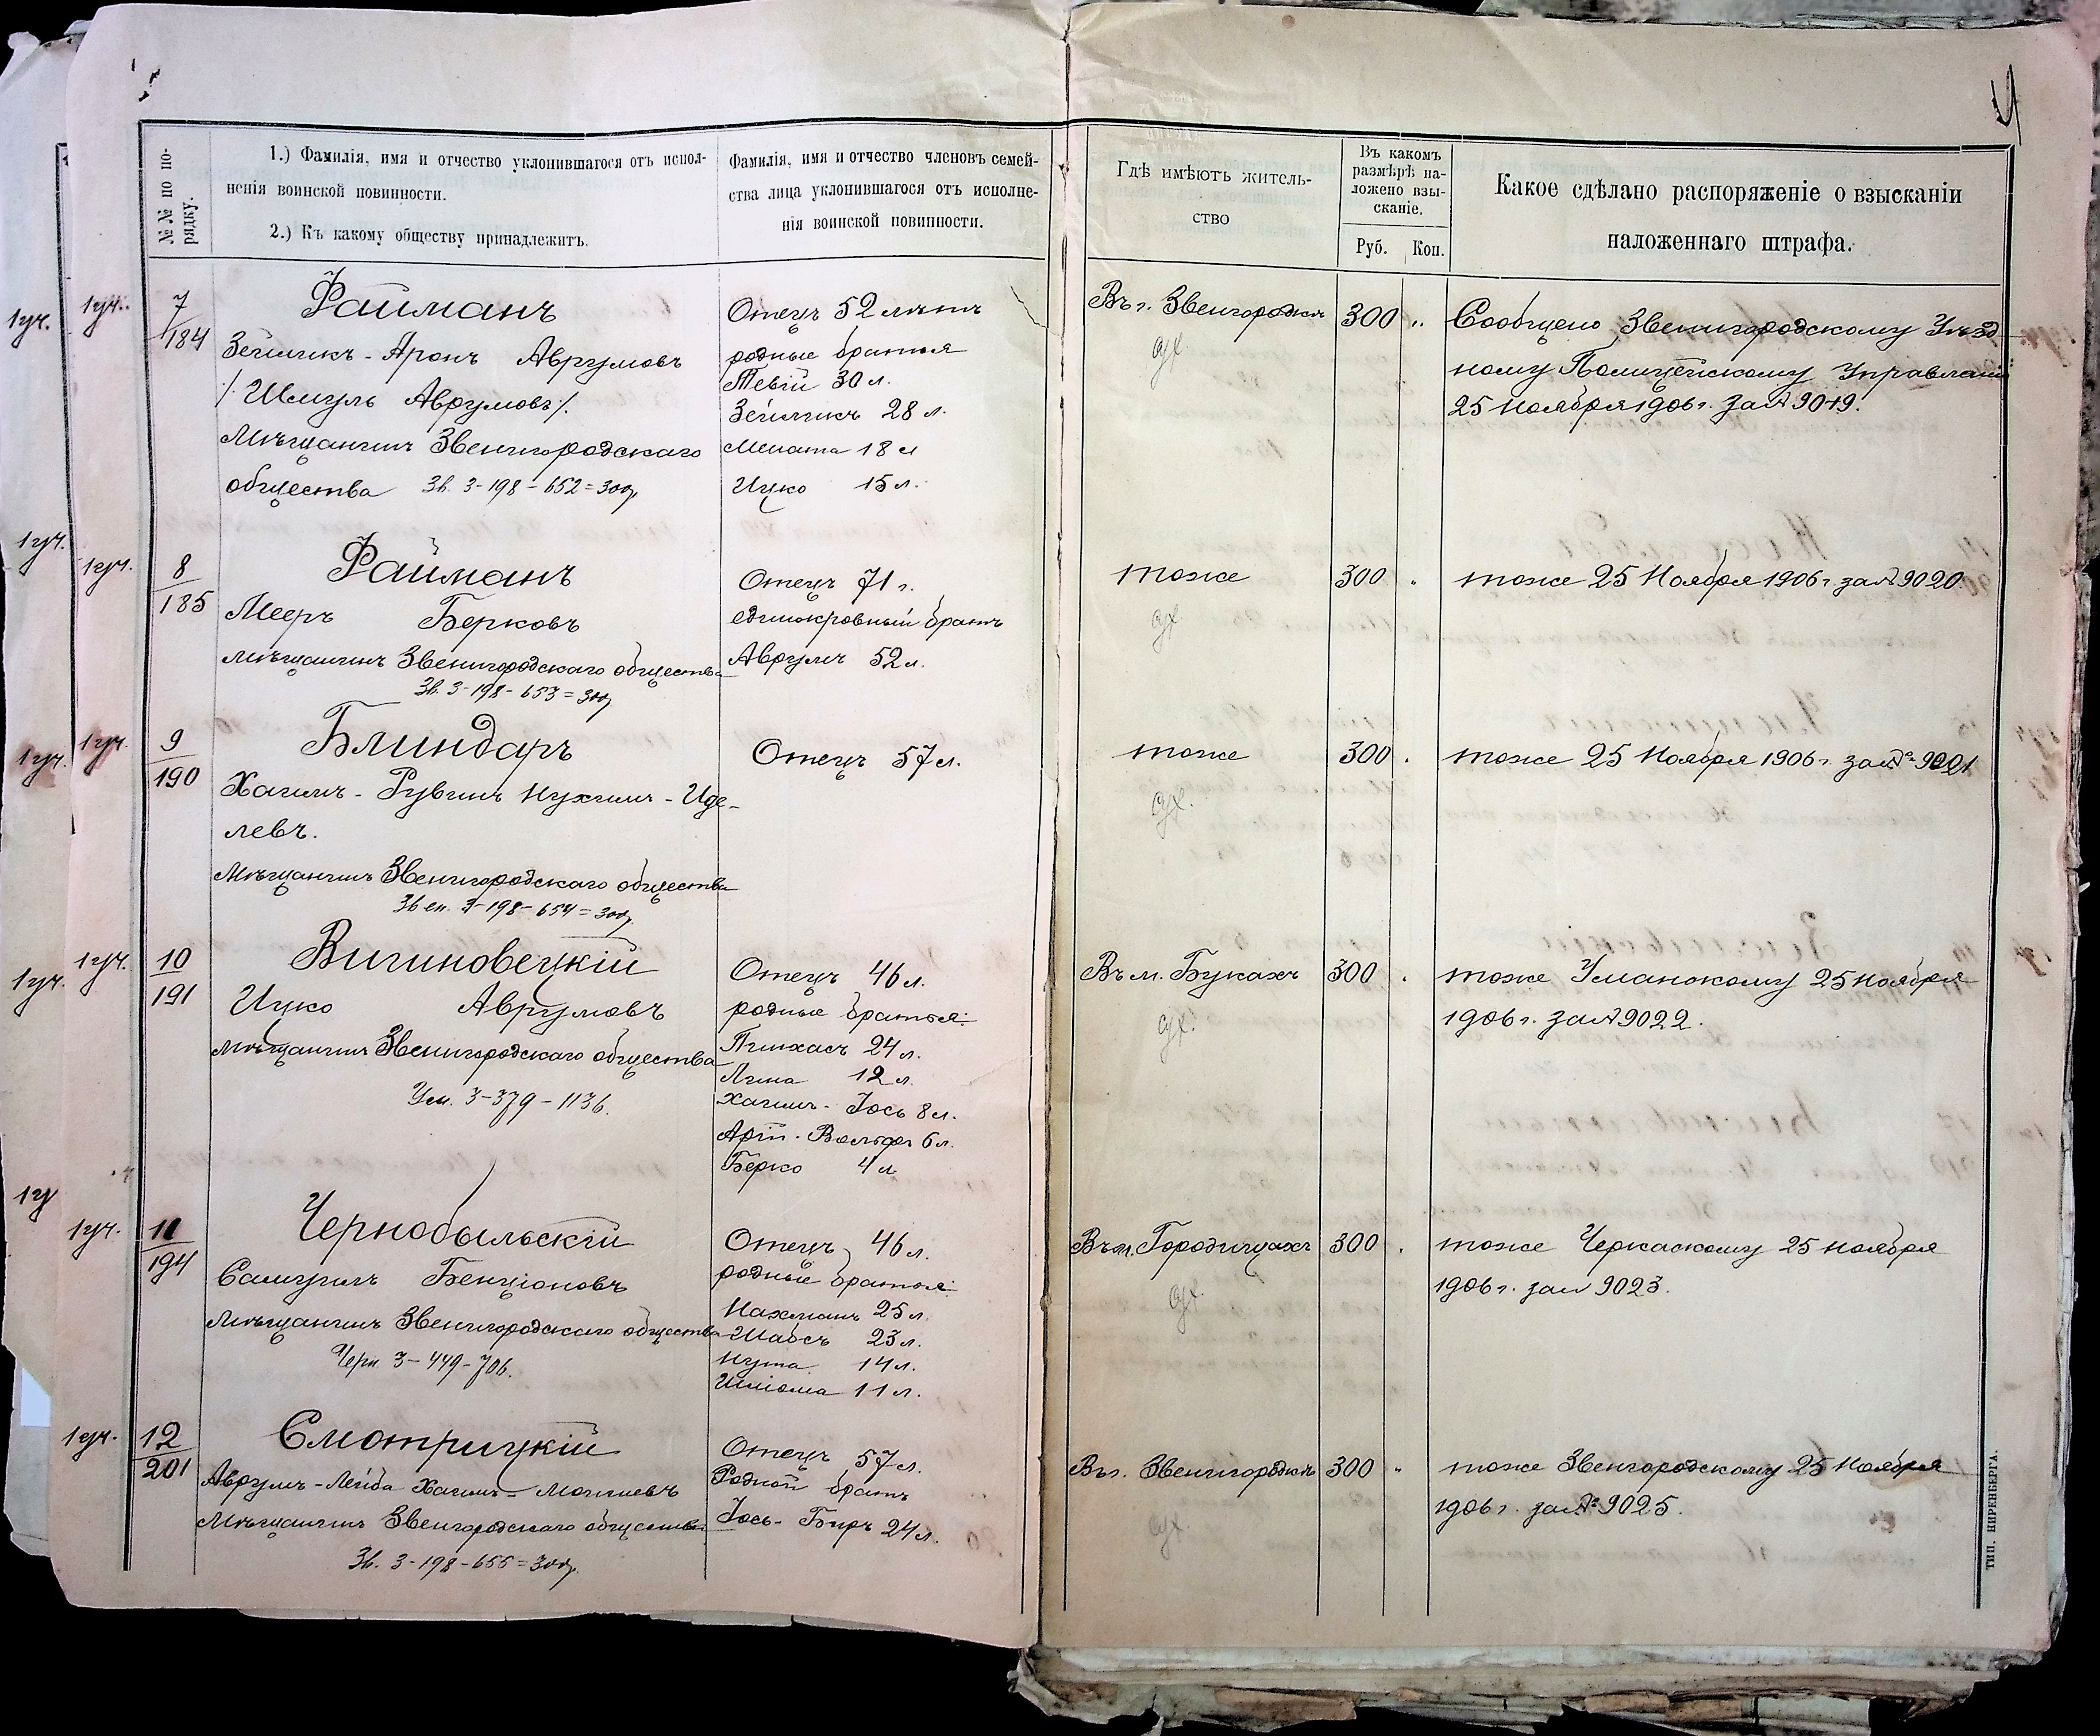 №№ по по-
рядку.
1.) Фамилія, имя и отчество уклонившагося отъ испол-
ненія воинской повинности.
2.) Къ какому обществу принадлежитъ.
Фамилія, имя и отчество членовъ семей-
ства лица уклонившагося отъ исполне-
нія воинской повинности.
Гдѣ имѣютъ житель-
ство
Въ какомъ
размѣрѣ на-
ложено взы-
сканіе.
Руб. Коп.
Какое сдѣлано распоряженіе о взысканіи
наложеннаго штрафа.
1уч. 1уч.
7
184
Файманъ
Зейликъ - Аронъ Аврумовъ
/. Шмуль Аврумовъ ./
Мѣщанинъ Звенигородскаго
общества Зв. 3-198-652=300р.
Отецъ 52 лѣтъ
родные братья
Тевій 30 л.
Зейликъ 28 л.
18 л
Ицко 15 л.
Въ г. Звенигородкѣ
300 "
Сообщено Звенигородскому Уѣзд
ному Полицейскому Управленію
25 Ноября 1906 г. за № 9019.
1уч. 1уч.
8
185
Файманъ
Мееръ Берковъ
мѣщанинъ Звенигородскаго общества
Зв. 3-198-653=300р
Отецъ 71 г.
единокровный братъ
Аврумъ 52 л.
тоже
300 "
тоже 25 Ноября 1906 г. за № 9020.
1уч. 1уч.
9
190
Блиндаръ
Хаимъ - Рувинъ Нухимъ - Иде-
левъ.
Мѣщанинъ Звенигородскаго общества
Звен. 3-198-654=300р.
Отецъ 57 л.
тоже
300 "
тоже 25 Ноября 1906 г. за № 9021
1уч. 1уч.
10
191
Вигиновецкій
Ицко Аврумовъ
мѣщанинъ Звенигородскаго общества
Ум. 3-379-1136.
Отецъ 46 л.
родные братья:
Пинхасъ 24 л.
12 л.
Хаимъ - Іось 8 л.
Арій - Вольфъ 6 л.
Берко 4 л
Въ м. Букахъ
300 "
тоже Уманскому 25 Ноября
1906 г. за № 9022.
1у
1уч.
11
194
Чернобыльскій
Самуилъ Бенціоновъ
Мѣщанинъ Звенигородскаго общества
Черк 3-449-706.
Отецъ 46 л.
родные братья:
Нахманъ 25 л.
Шабсъ 23 л.
Нута 14 л.
11 л.
Въ м. Городищахъ
300 "
тоже Черкаскому 25 Ноября
1906 г. за № 9023.
1уч.
12
201
Смотрицкій
Аврумъ - Лейба Хаимъ - Мошковъ
Мѣщанинъ Звенигородскаго общества
Зв. 3-198-655=300р.
Отецъ 57 л.
Родной братъ
Іось - Беръ 24 л.
Въ г. Звенигородкѣ
300 "
тоже Звенигородскому 25 Ноября
1906 г. за № 9025.
ТИП. НИРЕНБЕРГА.